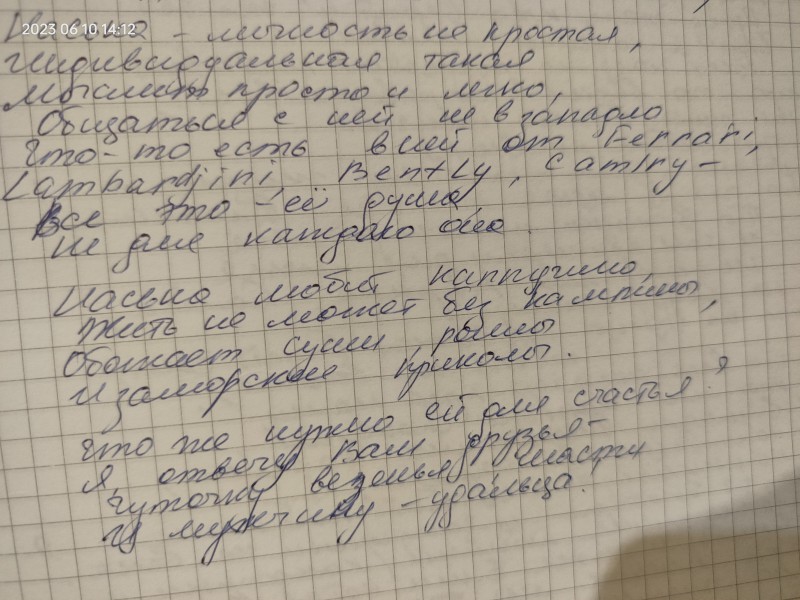 2023 06 10 14:12
Насьна - личность не простая,
Индивидуальная такая
Мыслит просто и легко,
Общаться с ней не в западло
Что-то есть в ней от Ferrari,
Lambardjini, Bently, Camry -
Все это - её душа,
не для каждого она.
Насьна любит каппучино,
Жить не может без кампины,
Обожает суши, роллы
И заморские приколы.
Что же нужно ей для счастья?
Я отвечу Вам друзья -
Чуточку везенья, власти
И мужчину - удальца.